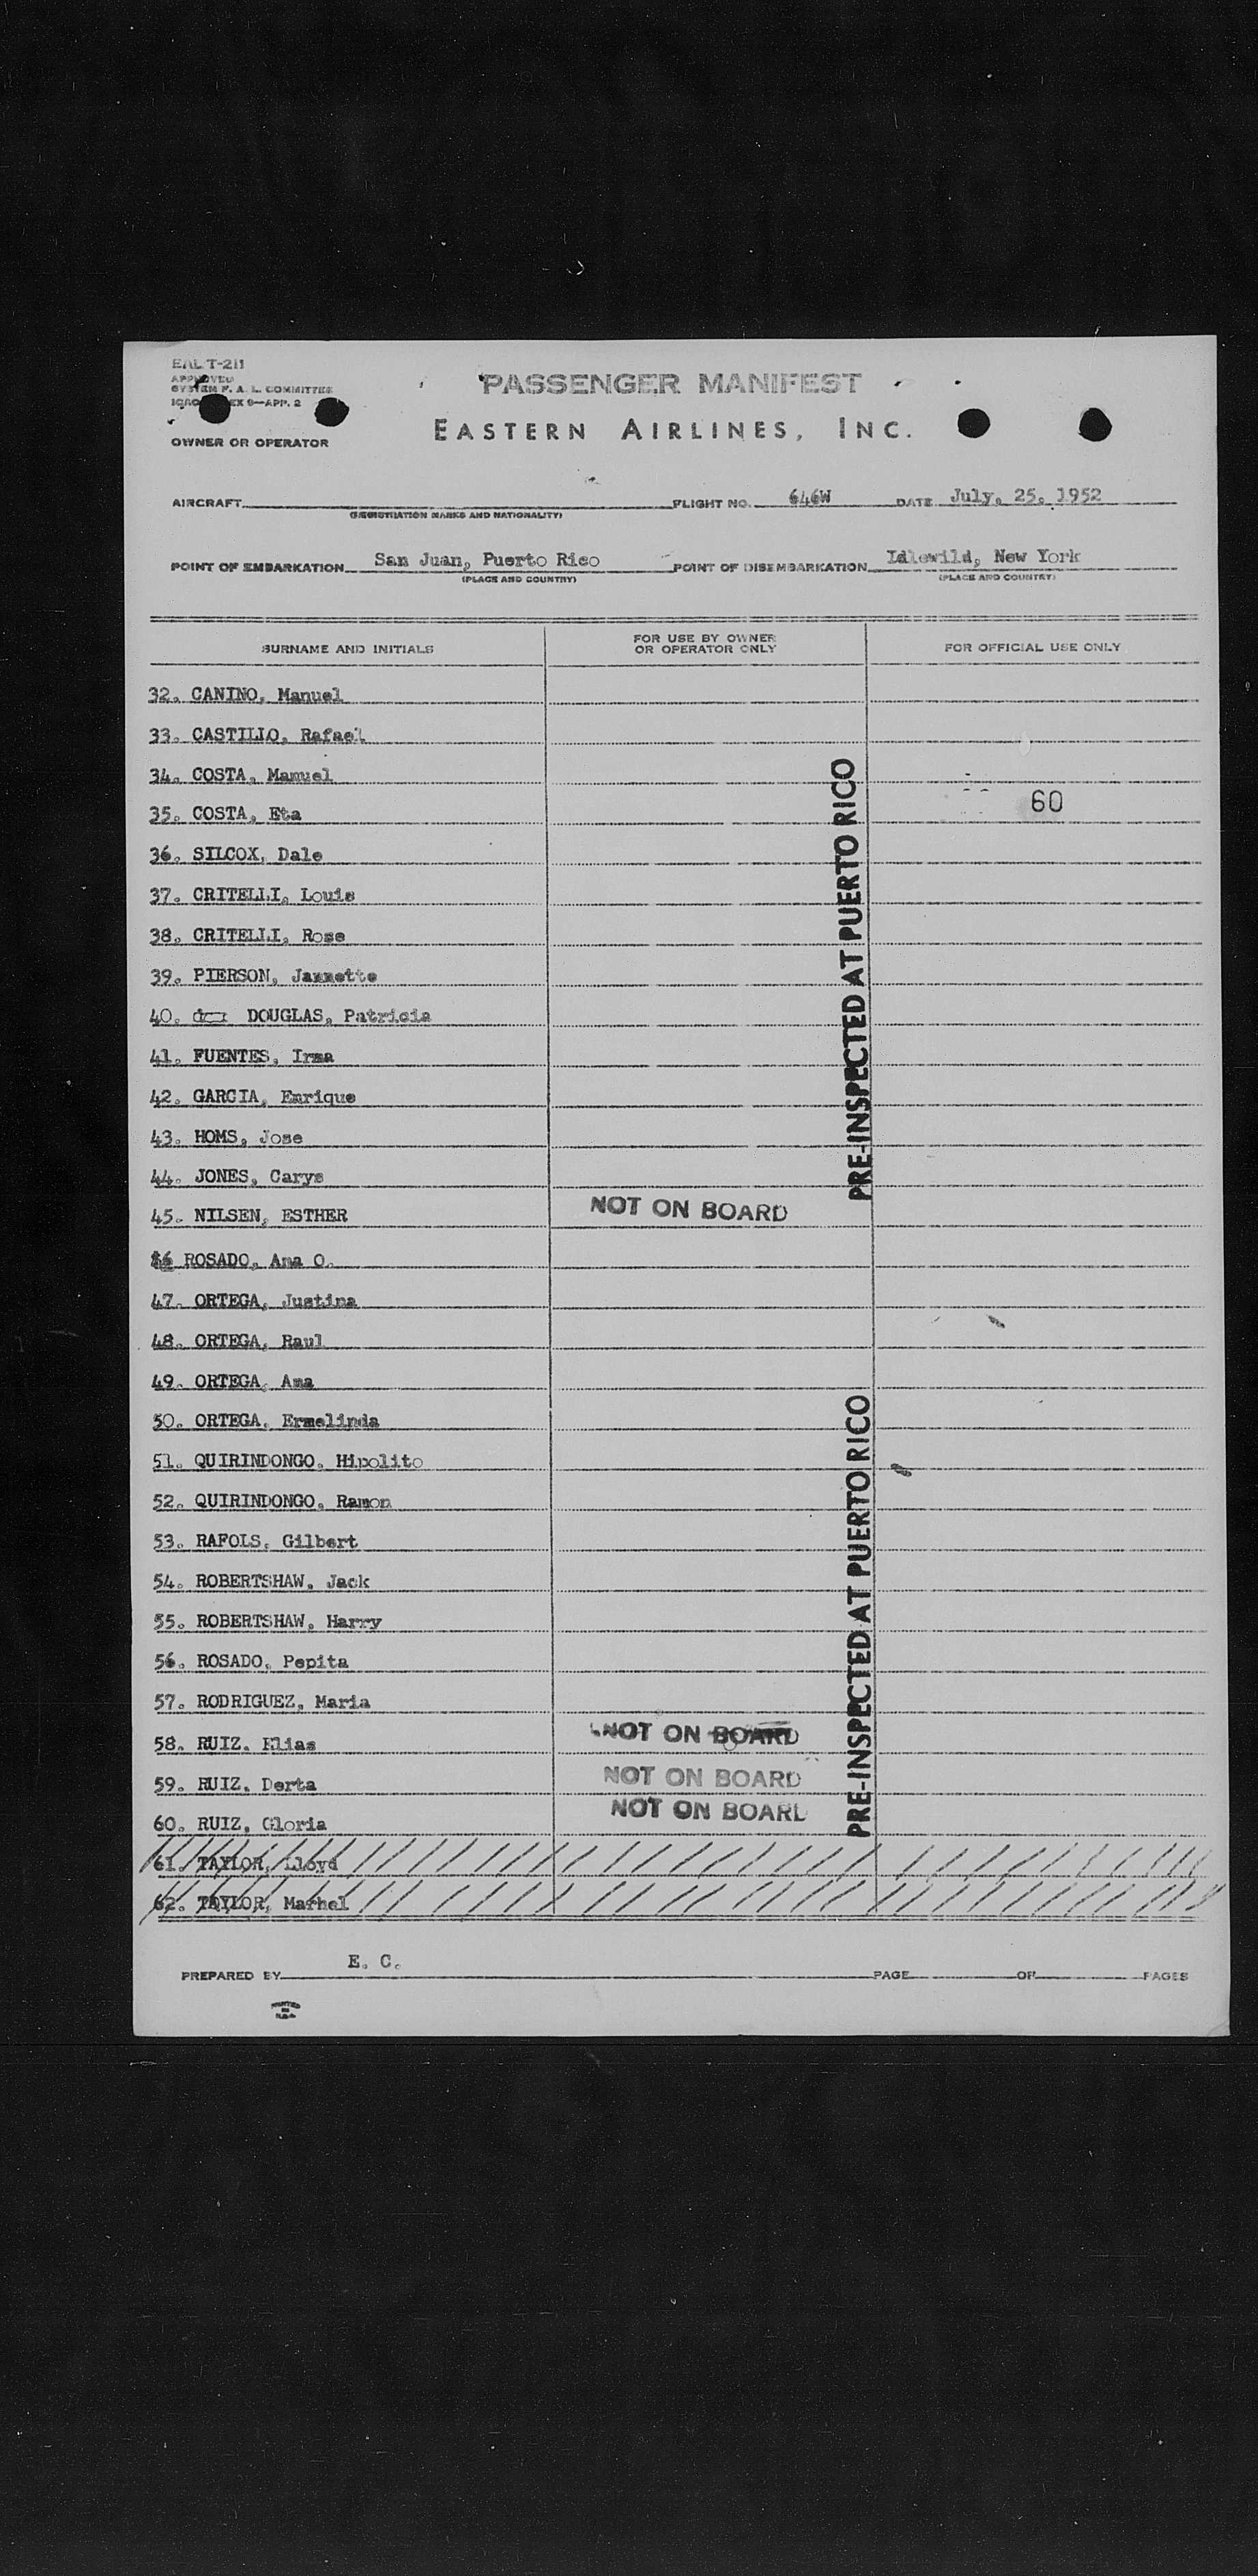 EAL T-211
APPROVED
SYSTEM F. A. L. COMMITTEE
EX 9—APP. 2
PASSENGER MANIFEST
EASTERN AIRLINES, INC.
OWNER OR OPERATOR
AIRCRAFT FLIGHT NO. 646W DATE July. 25. 1952
(REGISTRATION MARKS AND NATIONALITY)
POINT OF EMBARKATION San Juan, Puerto Rico POINT OF DISEMBARKATION Idlewild, New York
(PLACE AND COUNTRY) (PLACE AND COUNTRY)
SURNAME AND INITIALS FOR USE BY OWNER OR OPERATOR ONLY FOR OFFICIAL USE ONLY
32. CANINO, Manuel
33. CASTILLO, Rafael
34. COSTA, Manuel
35. COSTA, Eta 60
36. SILCOX, Dale
37. CRITELLI, Louis
38. CRITELLI, Rose
39. PIERSON, Jannette
40. DOUGLAS, Patricia
41. FUENTES, Irma
42. GARCIA, Enrique
43. HOMS, Jose
44. JONES, Carys
PRE-INSPECTED AT PUERTO RICO
45. NILSEN, ESTHER NOT ON BOARD
46 ROSADO, Ana O.
47. ORTEGA, Justina
48. ORTEGA, Raul
49. ORTEGA, Ana
50. ORTEGA, Ermelinda
51. QUIRINDONGO, Hipolito
52. QUIRINDONGO, Ramon
53. RAFOLS, Gilbert
54. ROBERTSHAW, Jack
55. ROBERTSHAW, Harry
56. ROSADO, Pepita
57. RODRIGUEZ, Maria
58. RUIZ. Elias NOT ON BOARD
59. RUIZ. Derta NOT ON BOARD
60. RUIZ, Gloria NOT ON BOARD
PRE-INSPECTED AT PUERTO RICO
61. TAYLOR, Lloyd
62. TAYLOR, Marhel
PREPARED BY E. C. PAGE OF PAGES
PRINTED
IN
U.S.A.